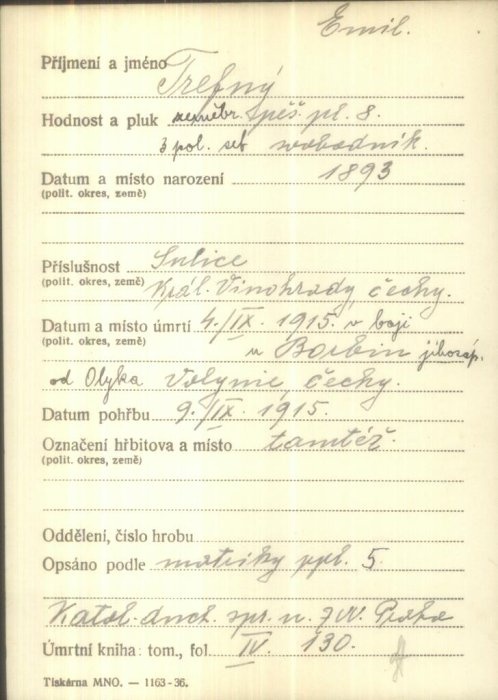 Emil.
Příjmení a jméno Trefný
Hodnost a pluk zeměbr. Spěš. pl. 8.
3 pol. set svobodník.
Datum a místo narození 1893
(polit. okres, země)
Příslušnost Sulice
(polit. okres, země) Král. Vinohrady, čechy.
Datum a místo úmrtí 4./IX. 1915. v boji
(polit. okres, země) u Borbin jihozáp.
od Olyka Volynie, čechy.
Datum pohřbu 9./IX. 1915.
Označení hřbitova a místo tamtéž.
(polit. okres, země)
Oddělení, číslo hrobu
Opsáno podle matriky ppl. 5.
Katol. duch. spr. n. Praha
Úmrtní kniha: tom., fol. IV. 130.
Tiskárna MNO. — 1163-36.